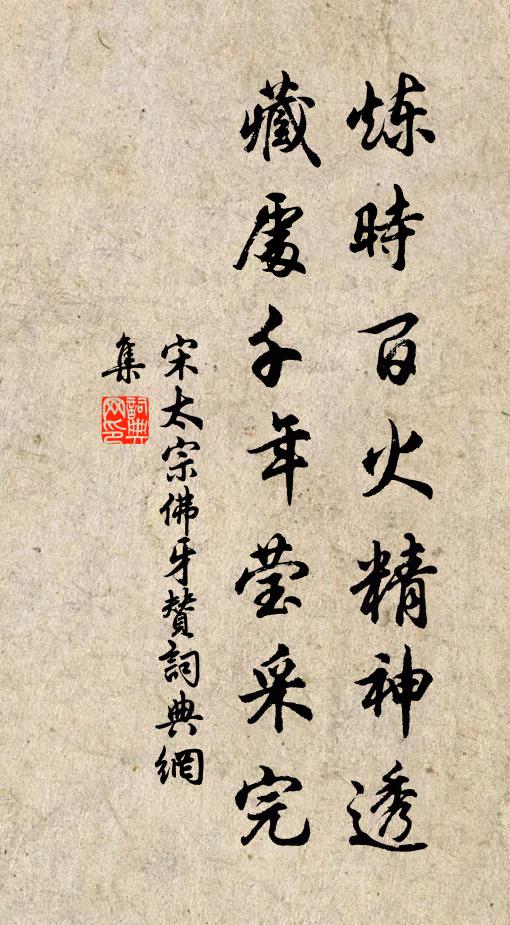 炼時百火精神透
藏處千年莹采完
宋太宗佛牙贊詞典網
集
詞典
网印